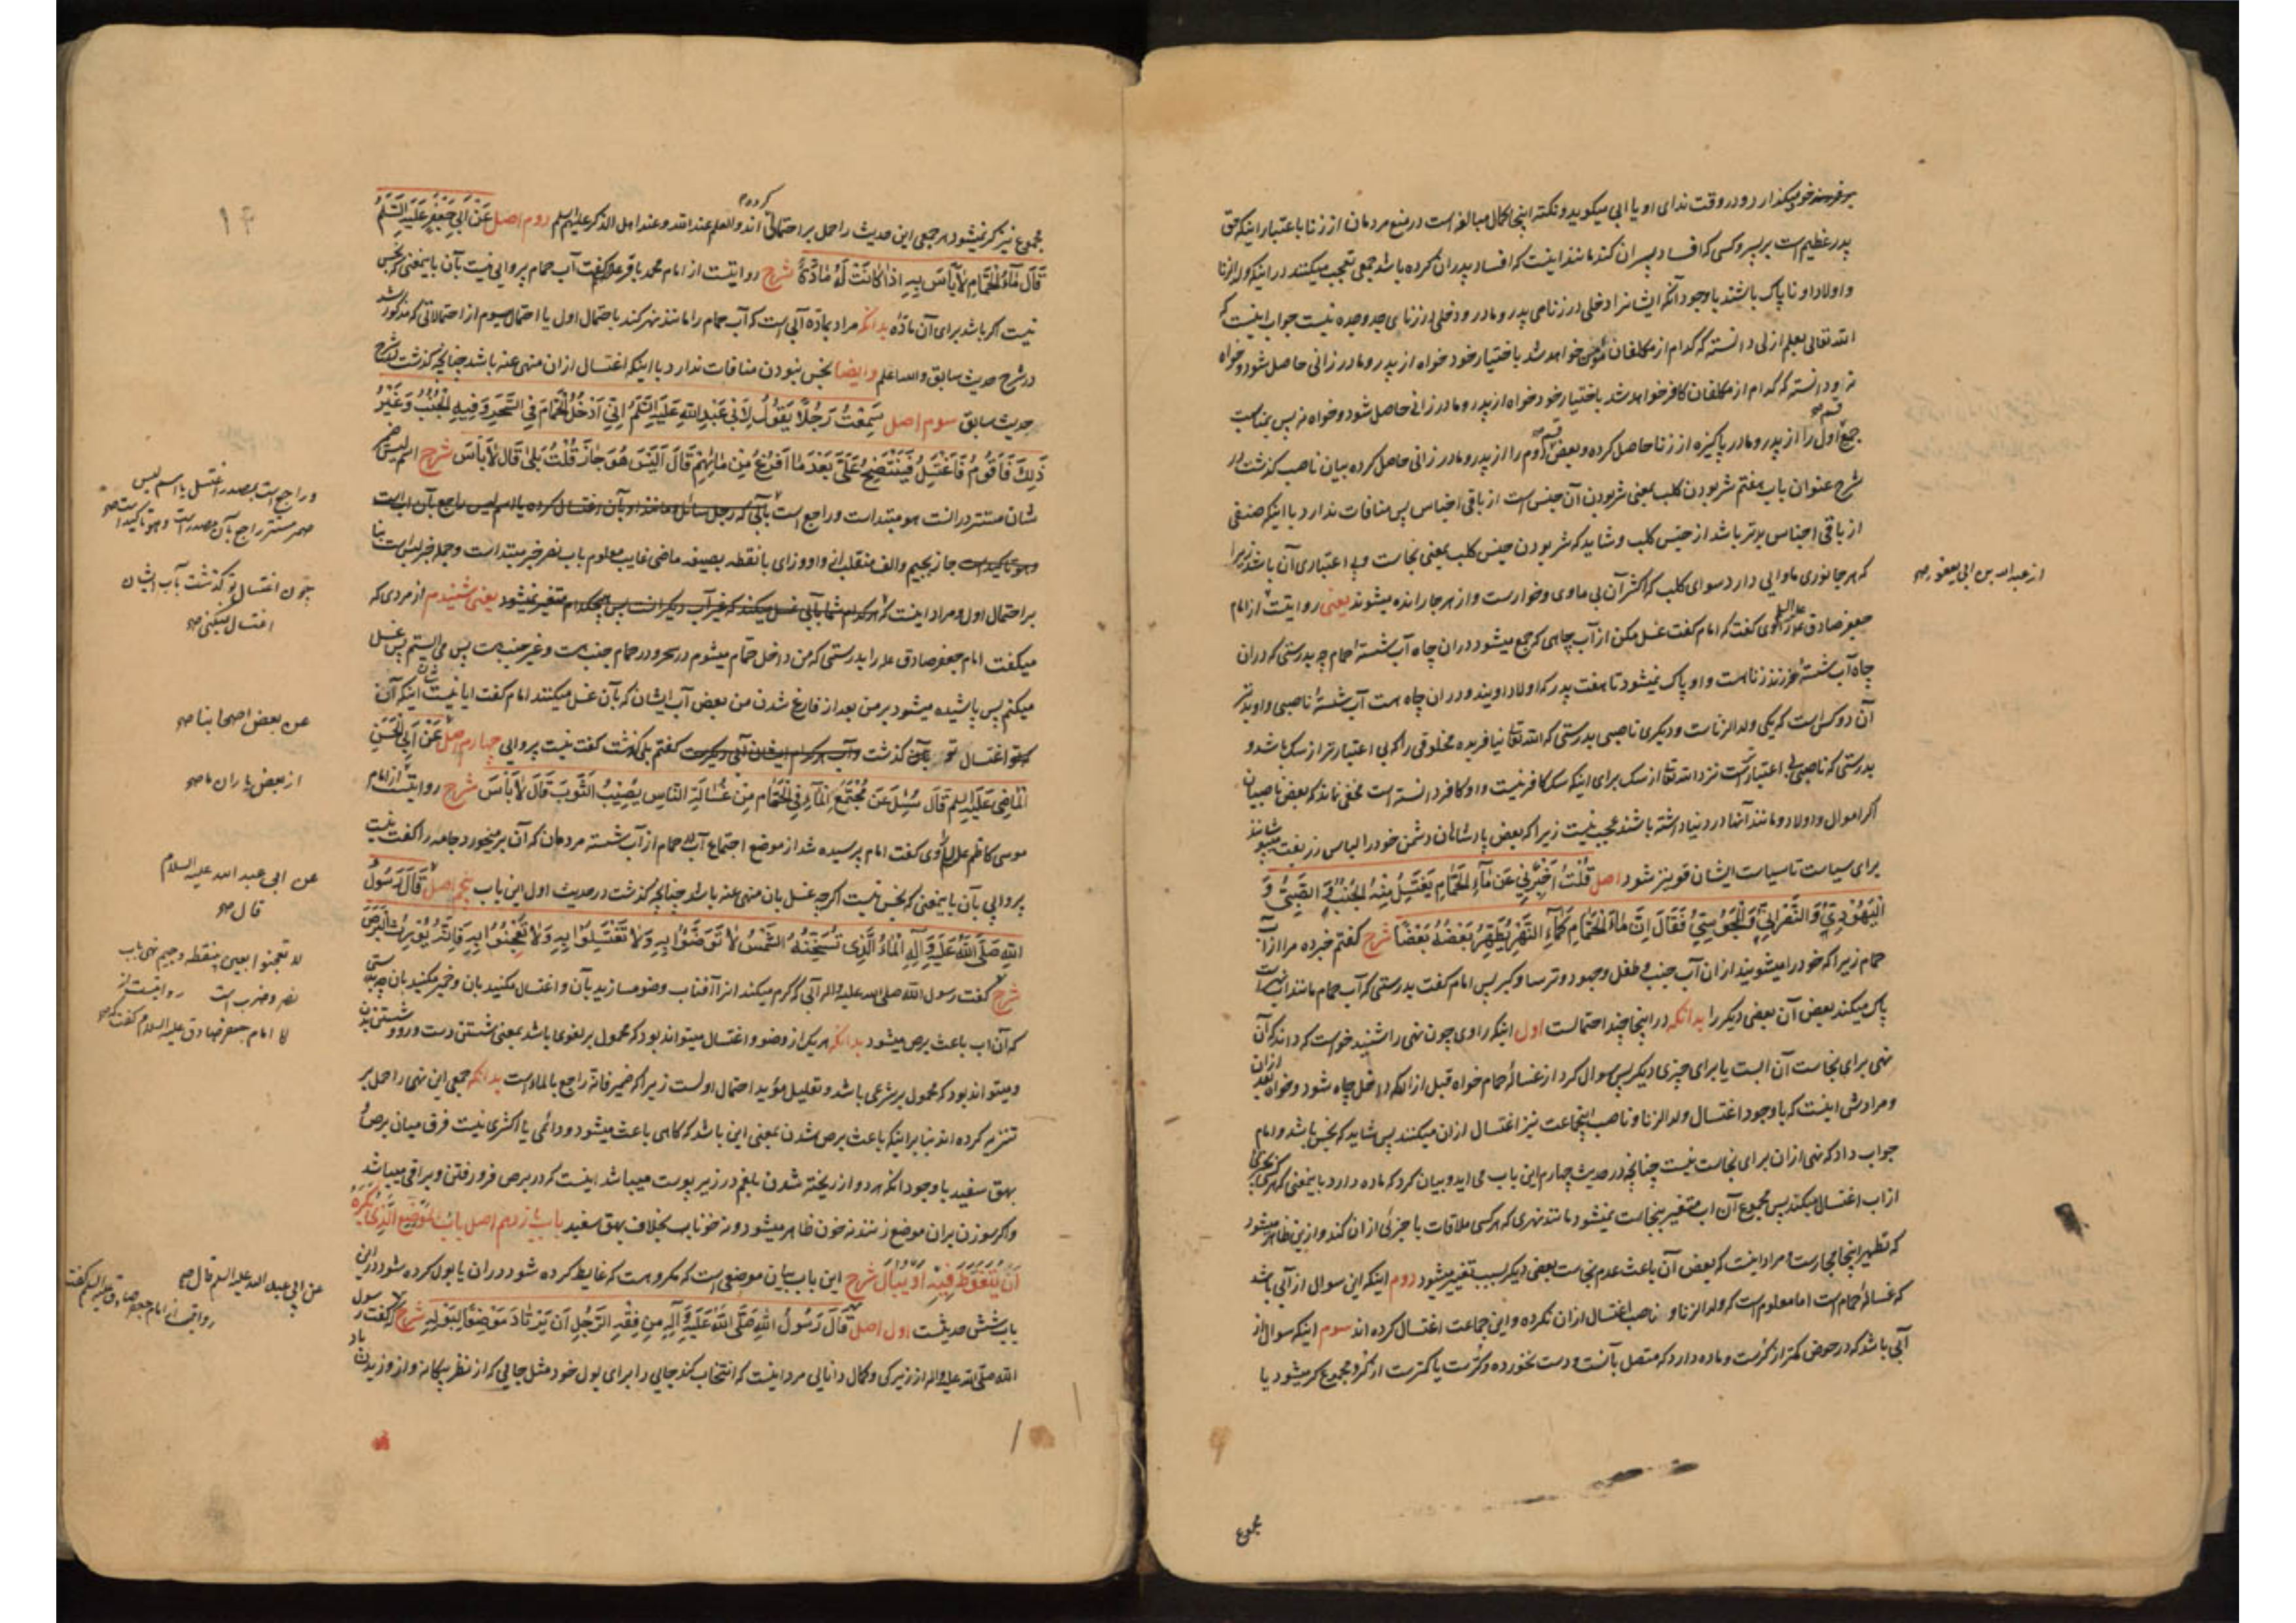 خود میگذارد و در وقت ندای او یا ابی میگوید و نکته اینجا کمال مبالغه است در منع مردمان از زنا باعتبار اینکه حق
پدر عظیم است بر پسر و کسی که افساد پسران کند مانند اینست که افساد پدران کرده باشد جمعی تعجب میکنند در اینکه ولد الزنا
و اولاد او ناپاک باشند با وجود آنکه ایشانرا دخلی در زناهی پدر و مادر و دخلی در زنای جد و جده نیست جواب اینست که
الله تعالی بعلم ازلی دانسته که کدام از مکلفان مؤمن خواهد شد باختیار خود خواه از پدر و مادر زانی حاصل شود و خواه
نه و دانسته که کدام از مکلفان کافر خواهد شد باختیار خود خواه از پدر و مادر زانی حاصل شود و خواه نه پس بمناسبت
جمع قسم اول را از پدر و مادر پاکیزه از زنا حاصل کرده و بعض قسم دوم را از پدر و مادر زانی حاصل کرده بیان ناصب گذشت در
شرح عنوان باب هفتم شر بودن کلب بمعنی شر بودن آن جنس است از باقی اجناس پس منافات ندارد با اینکه صنفی
از باقی اجناس بدتر باشد از جنس کلب و شاید که شر بودن جنس کلب بمعنی نجاست و بی اعتباری آن باشد زیرا
که هر جانوری ماوایی دارد سوای کلب که اکثر آن بی ماوی و خوارست و از هر جا رانده میشوند یعنی روایتست از امام
از عبدالله بن ابی یعفور صح
جعفر صادق علیه السلم راوی گفت که امام گفت غسل مکن از آب چاهی که جمع میشود در ان چاه آب شستهٔ حمام چه بدرستی که در ان
چاه آب شستهٔ فرزند زنا هست و او پاک نمیشود تا هفت پدر که اولاد اویند و در ان چاه هست آب شستهٔ ناصبی و او بدتر
آن دو کس است که یکی ولد الزناست و دیگری ناصبی بدرستی که الله تعالی نیافریده مخلوقی را که بی اعتبارتر از سک باشد و
بدرستی که ناصبی بی اعتبارتر است نزد الله تعالی از سک برای اینکه سک کافر نیست و او کافر دانسته است مخفی نماند که بعض ناصبیان
اگر اموال و اولاد و مانند آنها در دنیا داشته باشند عجب نیست زیرا که بعض پادشاهان دشمن خود را لباس زربفت میپوشانند
برای سیاست تا سیاست ایشان قویتر شود اصل قُلْتُ اَخْبِرْنِي عَنْ مَاءِ الحَمَّامِ يَغْتَسِلُ مِنْهُ الجُنُبُ وَ الصَّبِيُّ وَ
الْيَهُودِيُّ وَ النَّصْرَانِيُّ وَ الْمَجُوسِيُّ فَقَالَ اِنَّ مَاءَ الحَمَّامِ كَمَاءِ النَّهْرِ يُطَهِّرُ بَعْضُهُ بَعْضًا شرح گفتم خبر ده مرا از آب
حمام زیرا که خود را میشویند از ان آب جنب و طفل و جهود و ترسا و کبر پس امام گفت بدرستی که آب حمام مانند آب نهرست
پاک میکند بعض آن بعضی دیگر را بدانکه در اینجا چند احتمالست اول اینکه راوی چون نهی را شنید خواست که داند که آن
نهی برای نجاست آن آبست یا برای چیزی دیگر پس سوال کرد از غسالهٔ حمام خواه قبل از انکه داخل چاه شود و خواه بعد از ان
و مرادش اینست که با وجود اغتسال ولد الزنا و ناصب اینجماعت نیز اغتسال از ان میکنند پس شاید که نجس باشد و امام
جواب داد که نهی از ان برای نجاست نیست چنانچه در حدیث چهارم این باب می اید و بیان کرد که ماده دارد باینمعنی که
از اب اغتسال میکند پس مجموع آن اب متغیر بنجاست نمیشود مانند نهری که هر کسی ملاقات با جزئی از ان کند و ازین ظاهر میشود
که تطهیر اینجا مجازست و مراد اینست که بعض آن باعث عدم نجاست بعضی دیگر بسبب تغییر میشود دوم اینکه این سوال از آبی باشد
که غسالهٔ حمام است اما معلوم است که ولد الزنا و ناصب اغتسال از ان نکرده و این جماعت اغتسال کرده اند سوم اینکه سوال از
آبی باشد که در حوض کمتر از کرست و ماده دارد که متصل بآنست و دست نخورده و کرست یا کمترست از کر و مجموع کر میشود یا
مجموع
۱۴
مجموع نیز کر نمیشود هر جمعی این حدیث را حمل بر احتمالی کرده اند و العلم عند الله و عند اهل الذکر علیهم السلم دوم اصل عَنْ اَبِي جَعْفَرٍ عَلَيْهِ السَّلَمُ
قَالَ مَاءُ الْحَمَّامِ لَا بَأْسَ بِهِ اِذَا كَانَتْ لَهُ مَادَّةٌ شرح روایتست از امام محمد باقر علیه السلم گفت آب حمام پروایی نیست بآن باینمعنی که نجس
نیست اگر باشد برای آن مادّه بدانکه مراد بمادّه آبی است که آب حمام را مانند نهر کند باحتمال اول یا احتمال سیوم از احتمالاتی که مذکور شد
در شرح حدیث سابق والله اعلم و ایضا نجس نبودن منافات ندارد با اینکه اغتسال از ان منهی عنه باشد چنانچه گذشت در شرح
حدیث سابق سوم اصل سَمِعْتُ رَجُلًا يَقُولُ لِاَبِي عَبْدِ اللهِ عَلَيْهِ السَّلَمُ اِنِّي اَدْخُلُ الْحَمَّامَ فِي السَّحَرِ وَ فِيهِ الْجُنُبُ وَ غَيْرُ
ذَلِكَ فَاَقُومُ فَاَغْتَسِلُ فَيَنْتَضِحُ عَلَيَّ بَعْدَ مَا اَفْرُغُ مِنْ مَائِهِمْ قَالَ اَلَيْسَ هُوَ جَازَ قُلْتُ بَلَى قَالَ لَا بَأْسَ شرح اسم لیس ضمیر
شان مستتر در انست هو مبتداست و راجع است بآبی که رجل سائل مانند او بآن اغتسال کرده یا اسم لیس راجع بآن اب است
و راجع است بمصدر اغتسل یا اسم لیس
ضمیر مستتر راجع بآن مصدر است و هو تاکید است صح
و هو تاکید است جاز بجیم و الف منقلب از واو و زای با نقطه بصیغه ماضی غایب معلوم باب نصر خبر مبتداست و جمله خبر لیس است بنا
بر احتمال اول و مراد اینست که هر کدام شما بآبی غسل میکند که غیر آب دیگرانست پس هیچکدام متغیر نمیشود یعنی شنیدم از مردی که
چون اغتسال تو گذشت بآب ایشان
اغتسال نمیکنی صح
میگفت امام جعفر صادق علیه السلم را بدرستی که من داخل حمّام میشوم در سحر و در حمام جنب هست و غیر جنب هست پس می ایستم پس غسل
میکنم پس پاشیده میشود بر من بعد از فارغ شدن من بعض آب ایشان که بآن غسل میکنند امام گفت ایا نیست شان اینکه آن
اغتسال تو گذشت و آب هر کدام ایشان آبی دیگرست گفتم بلی گذشت گفت نیست پروایی چهارم اصل عَنْ اَبِي الْحَسَنِ
عن بعض اصحابنا صح
الْمَاضِي عَلَيْهِ السلم قَالَ سُئِلَ عَنْ مُجْتَمَعِ الْمَاءِ فِي الْحَمَّامِ مِنْ غُسَالَةِ النَّاسِ يُصِيبُ الثَّوْبَ قَالَ لَا بَأْسَ شرح روایتست از امام
از بعض یاران ما صح
موسی کاظم علیه السلم راوی گفت امام پرسیده شد از موضع اجتماع آب در حمام از آب شسته مردمان که آن بر میخورد جامه را گفت نیست
پروایی بآن باینمعنی که نجس نیست اگر چه غسل بان منهی عنه باشد چنانچه گذشت در حدیث اول این باب پنجم اصل قَالَ رَسُولُ
عن ابی عبد الله علیه السلام
قال صح
اللهِ صَلَّى اللهُ عَلَيْهِ وَ آلِهِ الْمَاءُ الَّذِي تُسَخِّنُهُ الشَّمْسُ لَا تَوَضَّئُوا بِهِ وَ لَا تَغْتَسِلُوا بِهِ وَ لَا تَعْجِنُوا بِهِ فَاِنَّهُ يُورِثُ الْبَرَصَ
لا تعجنوا بعین بینقطه و جیم نهی باب
نصر و ضرب است روایتست از
امام جعفر صادق علیه السلام گفت که صح
شرح گفت رسول الله صلی الله علیه و اله آبی که گرم میکند انرا آفتاب وضو مسازید بآن و اغتسال مکنید بان و خمیر مکنید بان چه بدرستی
که آن اب باعث برص میشود بدانکه هر یک از وضو و اغتسال میتواند بود که محمول بر لغوی باشد بمعنی شستن دست و رو و شستن بدن
و میتواند بود که محمول بر شرعی باشد و تعلیل مؤید احتمال اولست زیرا که ضمیر فانه راجع بالماء است بدانکه جمعی این نهی را حمل بر
تنزیه کرده اند بنا بر اینکه باعث برص شدن بمعنی این باشد که گاهی باعث میشود و دائمی یا اکثری نیست فرق میان برص و
بهق سفید با وجود انکه هر دو از ریخته شدن بلغم در زیر پوست میباشد اینست که در برص فرو رفتن و براقی میباشد
و اگر سوزن بران موضع زنند نه خون ظاهر میشود و نه خوناب بخلاف بهق سفید باب یازدهم اصل بَابُ الْمَوْضِعِ الَّذِي يُكْرَهُ
اَنْ يُتَغَوَّطَ فِيهِ اَوْ يُبَالَ شرح این باب بیان موضعی است که مکروهست که غایط کرده شود در ان یا بول کرده شود در این
باب شش حدیثست اول اصل قَالَ رَسُولُ اللهِ صَلَّى اللهُ عَلَيْهِ وَ آلِهِ مِنْ فِقْهِ الرَّجُلِ اَنْ يَرْتَادَ مَوْضِعًا لِبَوْلِهِ شرح گفت رسول
عن ابی عبد الله علیه السلم قال صح
روایتست از امام جعفر صادق علیه السلم که گفت
الله صلی الله علیه و اله از زیرکی و کمال دانایی مرد اینست که انتخاب کند جایی را برای بول خود مثل جایی که از نظر بیگانه و از وزیدن باد